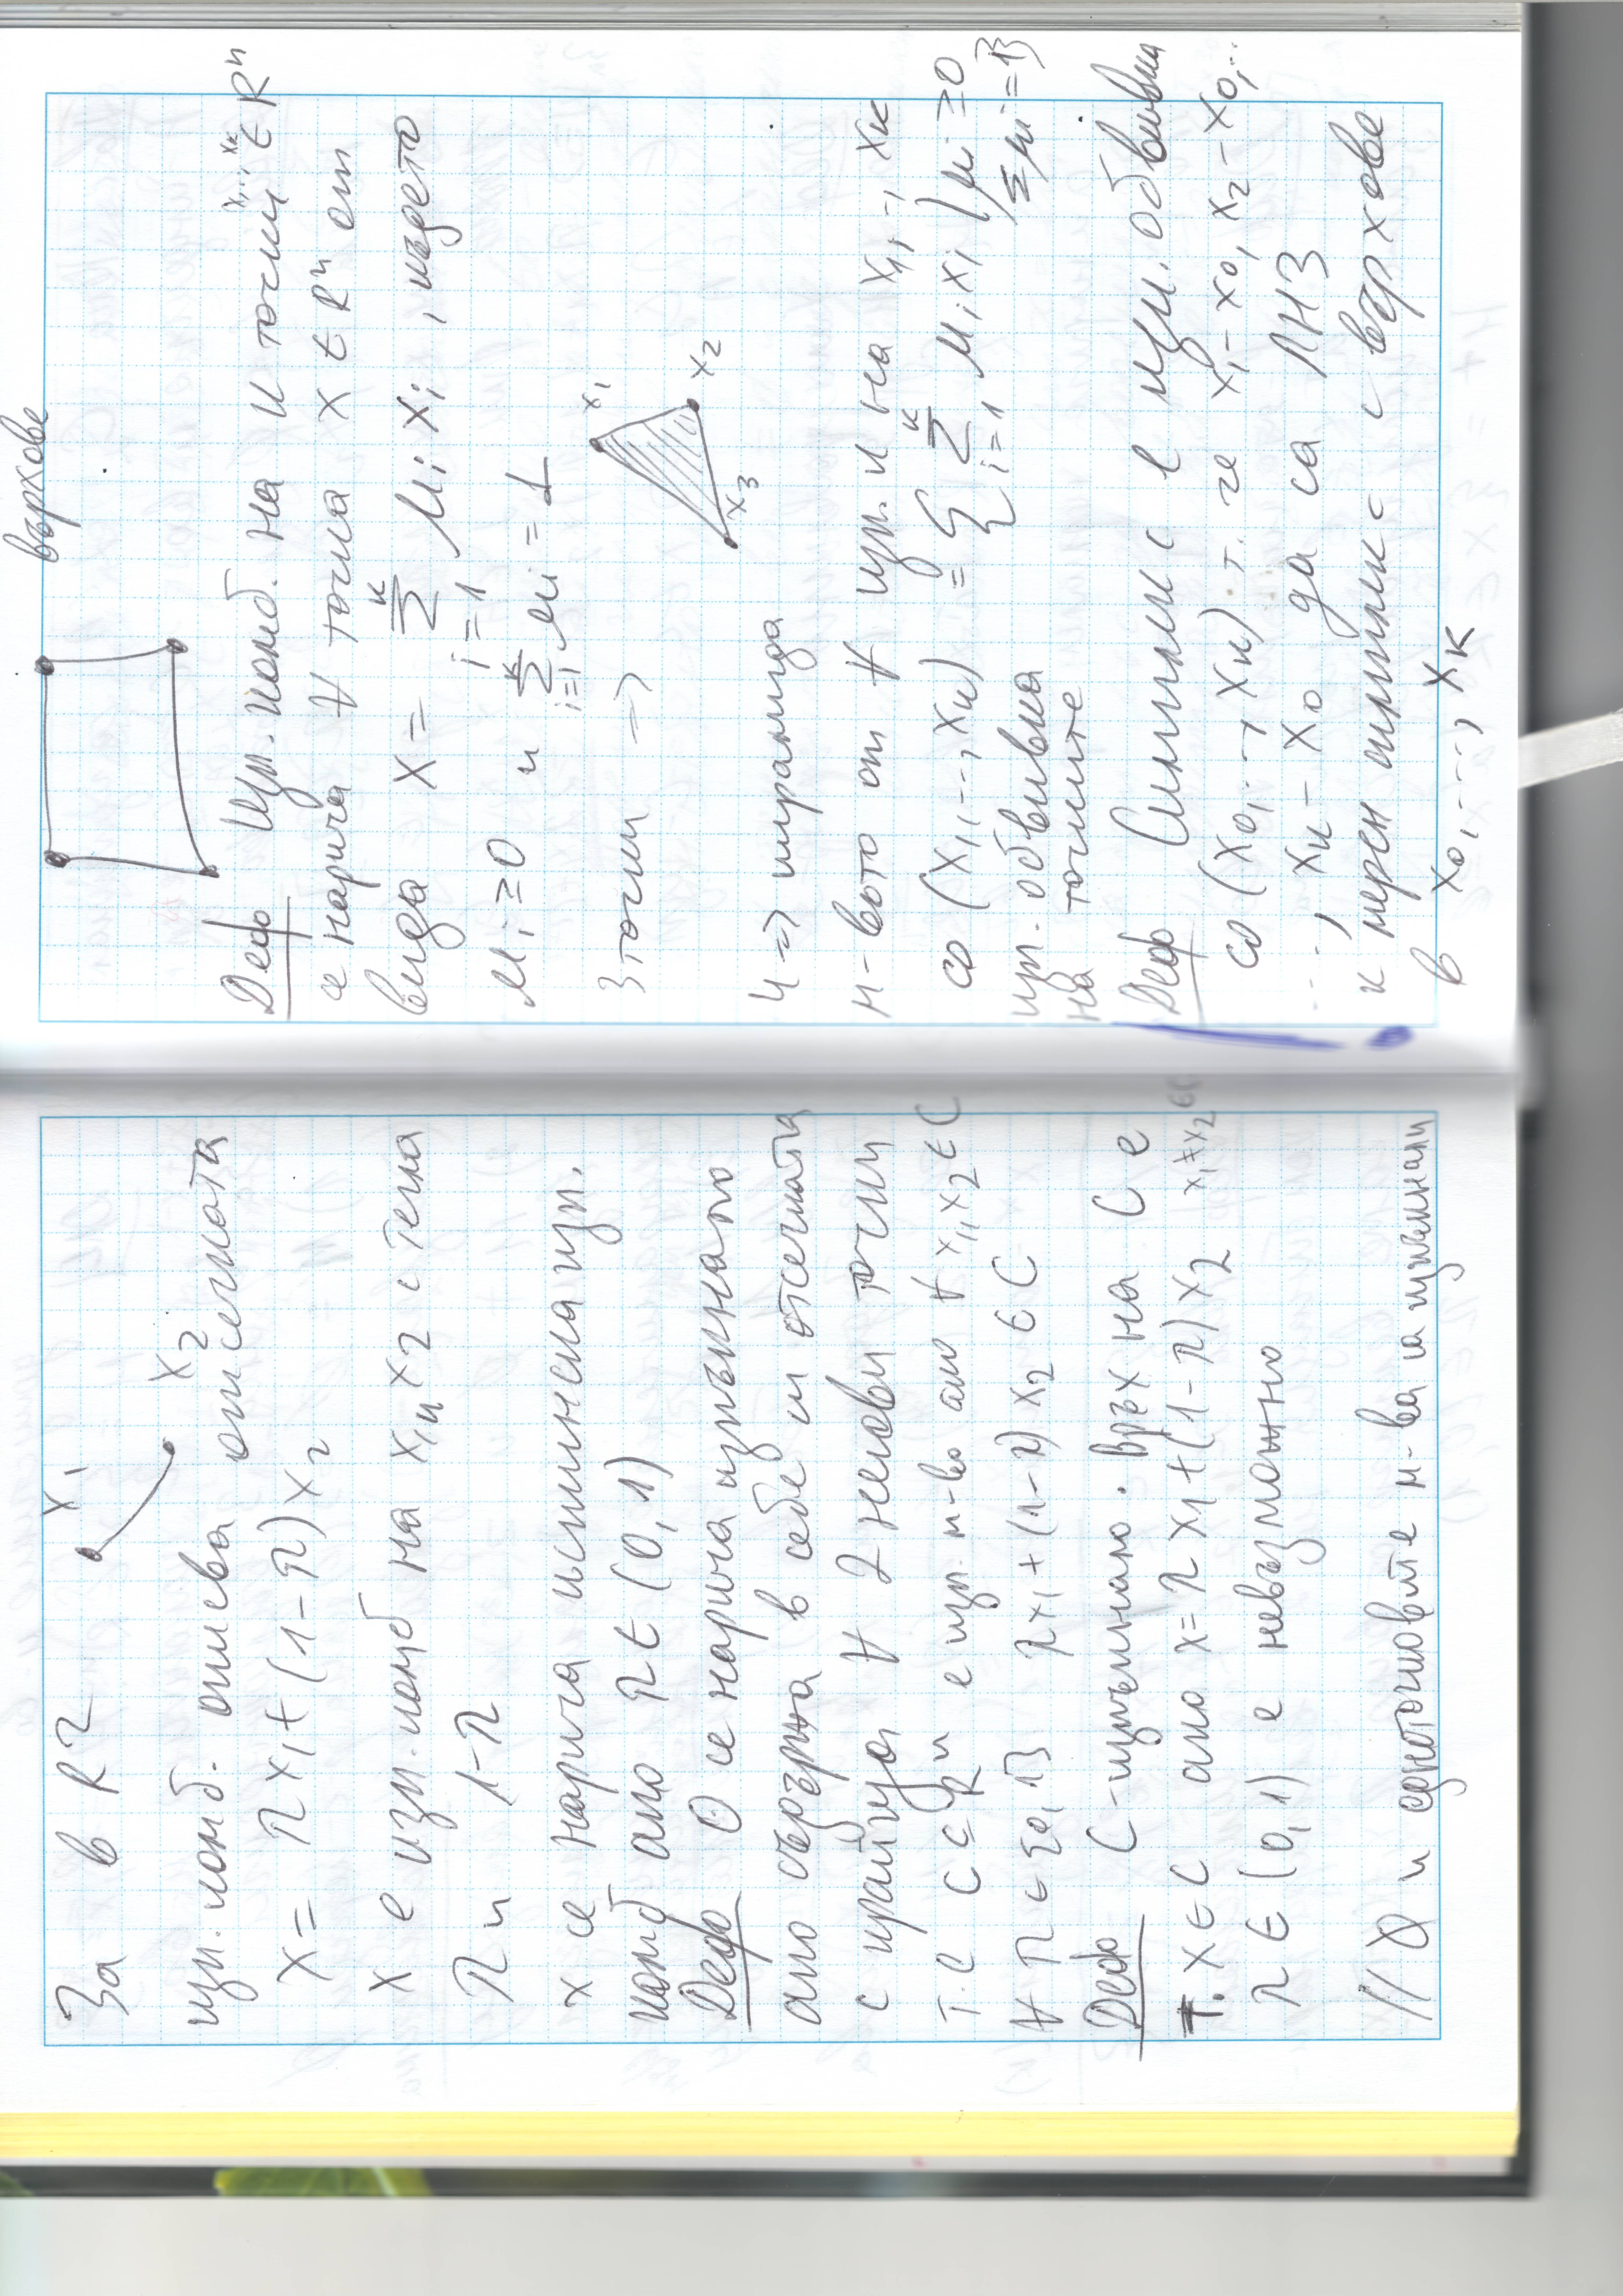 За в R2
x1
x2
изп. комб. описва отсечката
x = λx1 + (1-λ)x2
x е изп. комб на x1 и x2 с тегла
λ и 1-λ
x се нарича истинска изп.
комб ако λ ∈ (0, 1)
Деф О се нарича изпъкнато
ако съдържа в себе си отсечката
с краища ∀ 2 негови точки
т.е C ⊆ R^n е изп. м-во ако ∀ x1, x2 ∈ C
∀ λ ∈ [0,1] λx1 + (1-λ)x2 ∈ C
Деф C-изпъкнало. връх на C е
т. x ∈ C ако x = λx1 + (1-λ)x2 x1≠x2 ∈ C
λ ∈ (0, 1) е невъзможно
// Ø и едноточковите м-ва са изпъкнали
върхове
Деф Изп. комб. на k точки x1,..., xk ∈ R^n
се нарича ∀ точка x ∈ R^n от
вида x = k Σ i=1 μi xi, където
μi ≥ 0 и k Σ i=1 μi = 1
3 точки =>
x1
x2
x3
4 => пирамида
м-вото от ∀ изп. к на x1, ..., xk
co (x1, ..., xk) = { k Σ i=1 μi xi | μi ≥ 0
Σμi = 1}
изп. обвивка
на точките
Деф Симплекс е изп. обвивка
co (x0, ..., xk) т. че x1 - x0, x2 - x0, ...
..., xk - x0 да са ЛНЗ
k мерен симплекс с върхове
в x0, ..., xk